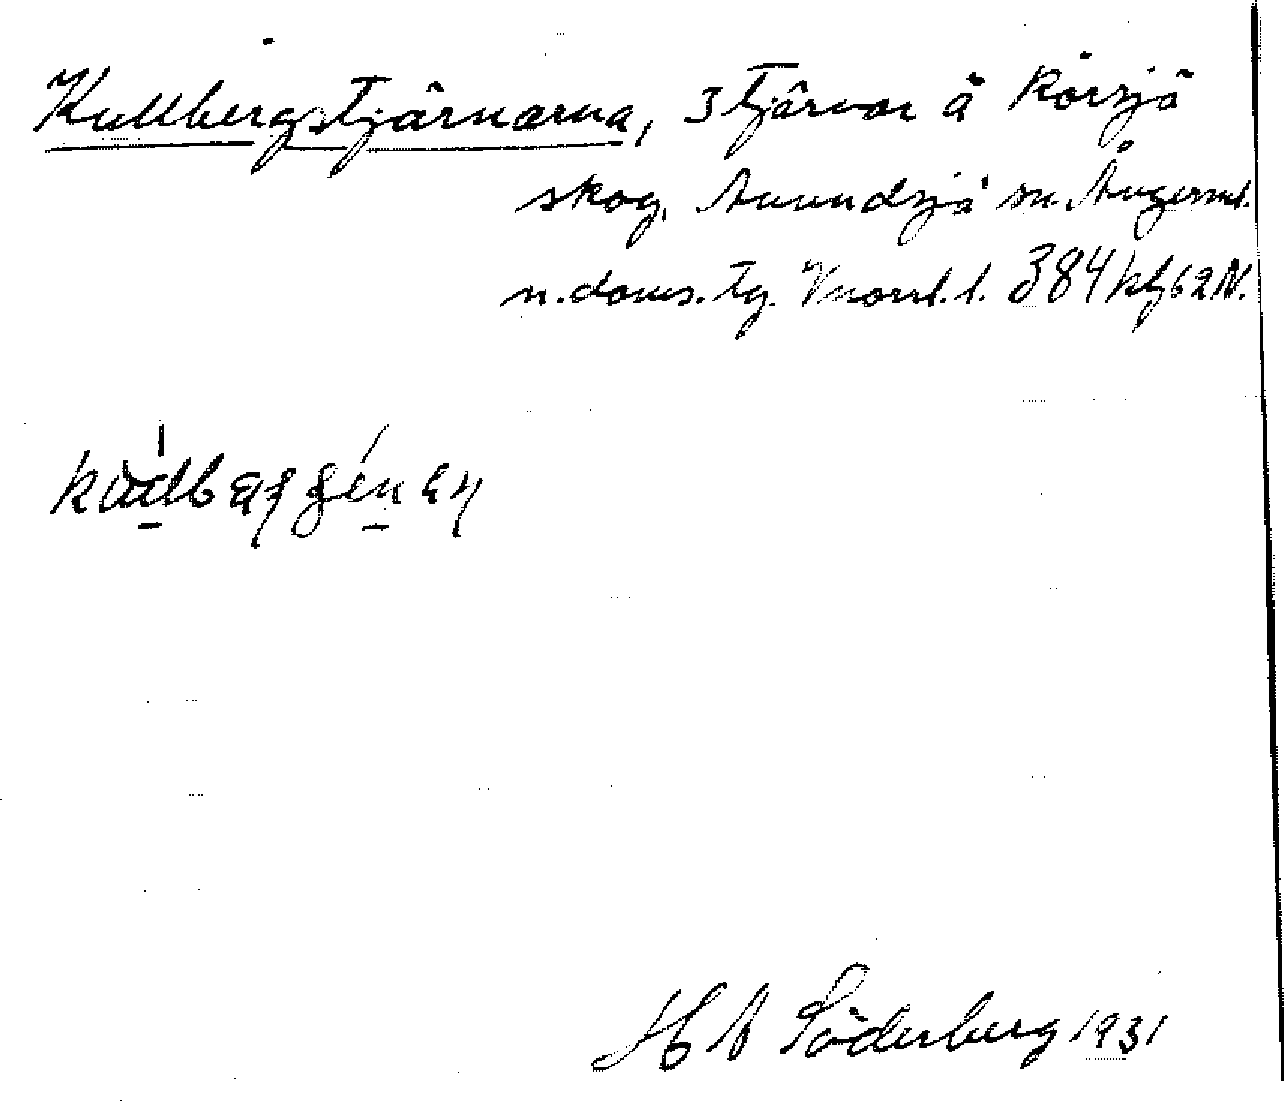 Kullbergstjärnarna, 3 tjärnar å Rörsjö
skog, Anundsjö sn. Ångerml.
n. doms. tg. Vnorrl. l. 384 kbl 62 N.
H A Söderberg 1931